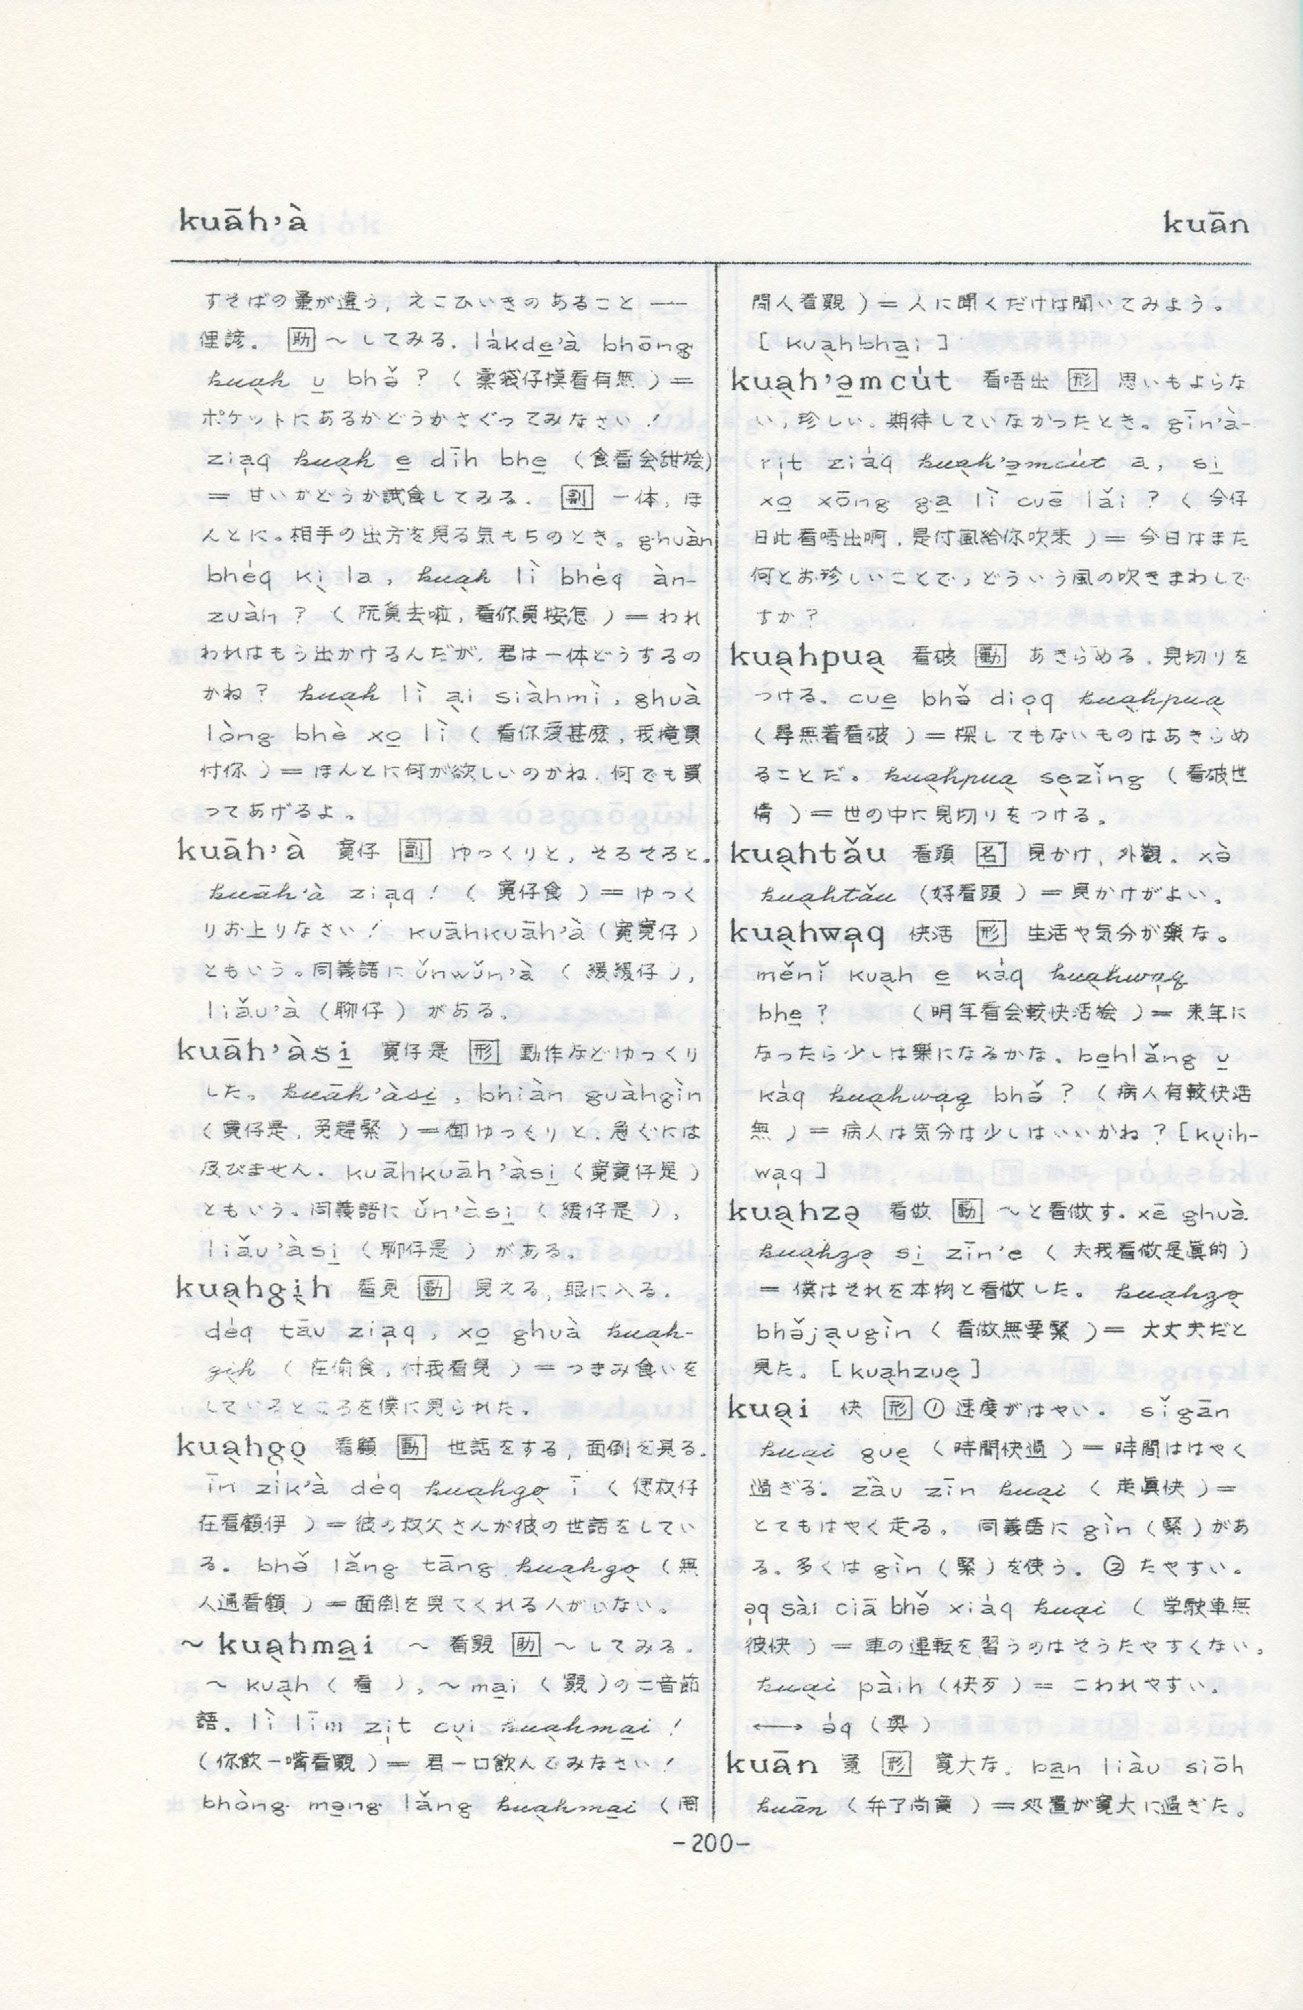 kuāh'à
kuān
すそばの量が違う, えこひいきのあること ——
俚諺. 助 〜してみる. lǎkde̲'à bhōng
kua̖h u̲ bhə̌ ? ( 橐袋仔摸看有無 ) =
ポケットにあるかどうかさぐってみなさい !
zia̍q kua̖h e̲ dīh bhe̲ ( 食看会甜𣍐 )
= 甘いかどうか試食してみる. 副 一体, ほ
んとに。相手の出方を見る気もちのとき。ghuàn
bhéq ki̖ la , kua̖h lì bhéq àn-
zuàh ? ( 阮覓去啦, 看你覓按怎 ) = われ
われはもう出かけるんだが, 君は一体どうするの
かね ? kua̖h lì a̖i siàhmì, ghuà
lòng bhè xo̲ lì ( 看你愛甚麼, 我攏買
付你 ) = ほんとに何が欲しいのかね, 何でも買
ってあげるよ。
kuāh'à 寛仔 副 ゆっくりと, そろそろと。
kuāh'à zia̍q ! ( 寛仔食 ) = ゆっく
りお上りなさい ! kuāhkuāh'à ( 寛寛仔 )
ともいう。同義語に ǔnwǔn'à ( 緩緩仔 ),
liǎu'à ( 聊仔 ) がある.
kuāh'àsi̲ 寛仔是 形 動作などゆっくり
した。kuāh'àsi̲ , bhiàn guàhgìn
( 寛仔是, 免趕緊 ) = 御ゆっくりと, 急ぐには
及びません. kuāhkuāh'àsi̲ ( 寛寛仔是 )
ともいう。同義語に ǔn'àsi̲ ( 緩仔是 ),
liǎu'àsi̲ ( 聊仔是 ) がある。
kua̖hgi̖h 看見 動 見える, 眼に入る.
déq tāu zia̍q , xo̲ ghuà kua̖h-
gi̖h ( 在偷食, 付我看見 ) = つまみ食いを
しているところを僕に見られた。
kua̖hgo̖ 看顧 動 世話をする, 面倒を見る.
īn zík'à déq kua̖hgo̖ ī ( 㑑叔仔
在看顧伊 ) = 彼の叔父さんが彼の世話をしてい
る。bhə̌ lǎng tāng kua̖hgo̖ ( 無
人通看顧 ) = 面倒を見てくれる人がいない。
〜 kua̖hma̲i 〜 看覭 助 〜してみる.
〜 kua̖h ( 看 ), 〜 ma̲i ( 覭 )の二音節
語。lì līm zi̍t cu̖i kua̖hma̲i !
( 你飲一嘴看覭 ) = 君一口飲んでみなさい !
bhòng mə̲ng lǎng kua̖hma̲i ( 罔
問人看覭 ) = 人に聞くだけは聞いてみよう。
[ kua̖hbha̲i ]
kua̖h'ə̲mcút 看唔出 形 思いもよらな
い, 珍しい。期待していなかったとき。gīn'à-
ri̍t ziáq kua̖h'ə̲mcút a, si̲
xo̲ xōng ga̲ lì cuē lǎi ? ( 今仔
日此看唔出啊, 是付風給你吹来 ) = 今日はまた
何とお珍しいことで, どういう風の吹きまわしで
すか ?
kua̖hpua̖ 看破 動 あきらめる, 見切りを
つける。cue̲ bhə̌ dio̍q kua̖hpua̖
( 尋無着看破 ) = 探してもないものはあきらめ
ることだ。kua̖hpua̖ se̖zǐng ( 看破世
情 ) = 世の中に見切りをつける。
kua̖htǎu 看頭 名 見かけ, 外観. xə̀
kua̖htǎu ( 好看頭 ) = 見かけがよい。
kua̖hwa̍q 快活 形 生活や気分が楽な。
měnǐ kua̖h e̲ káq kua̖hwa̍q
bhe̲ ? ( 明年看会較快活𣍐 ) = 来年に
なったら少しは楽になるかな。be̲hlǎng u̲
káq kua̖hwa̍q bhə̌ ? ( 病人有較快活
無 ) = 病人は気分は少しはいいかね ? [ ku̖ih-
wa̍q ]
kua̖hzə̖ 看做 動 〜と看做す. xē ghuà
kua̖hzə̖ si̲ zīn'e ( 夫我看做是真的 )
= 僕はそれを本物と看做した。 kua̖hzə̖
bhə̌ja̖ugìn ( 看做無要緊 ) = 大丈夫だと
見た。[ kua̖hzue̖ ]
kua̖i 快 形 ① 速度がはやい。 sǐgān
kua̖i gue̖ ( 時間快過 ) = 時間ははやく
過ぎる. zàu zīn kua̖i ( 走真快 ) =
とてもはやく走る。 同義語に gìn ( 緊 ) があ
る。多くは gìn ( 緊 ) を使う。 ② たやすい。
ə̍q sài ciā bhə̌ xiáq kua̖i ( 学駛車無
彼快 ) = 車の運転を習うのはそうたやすくない。
kua̖i pàih ( 快歹 ) = こわれやすい。
⟷ əq ( 奥 )
kuān 寛 形 寛大な。ba̲n liàu siōh
kuān ( 弁了尚寛 ) = 処置が寛大に過ぎた。
-200-